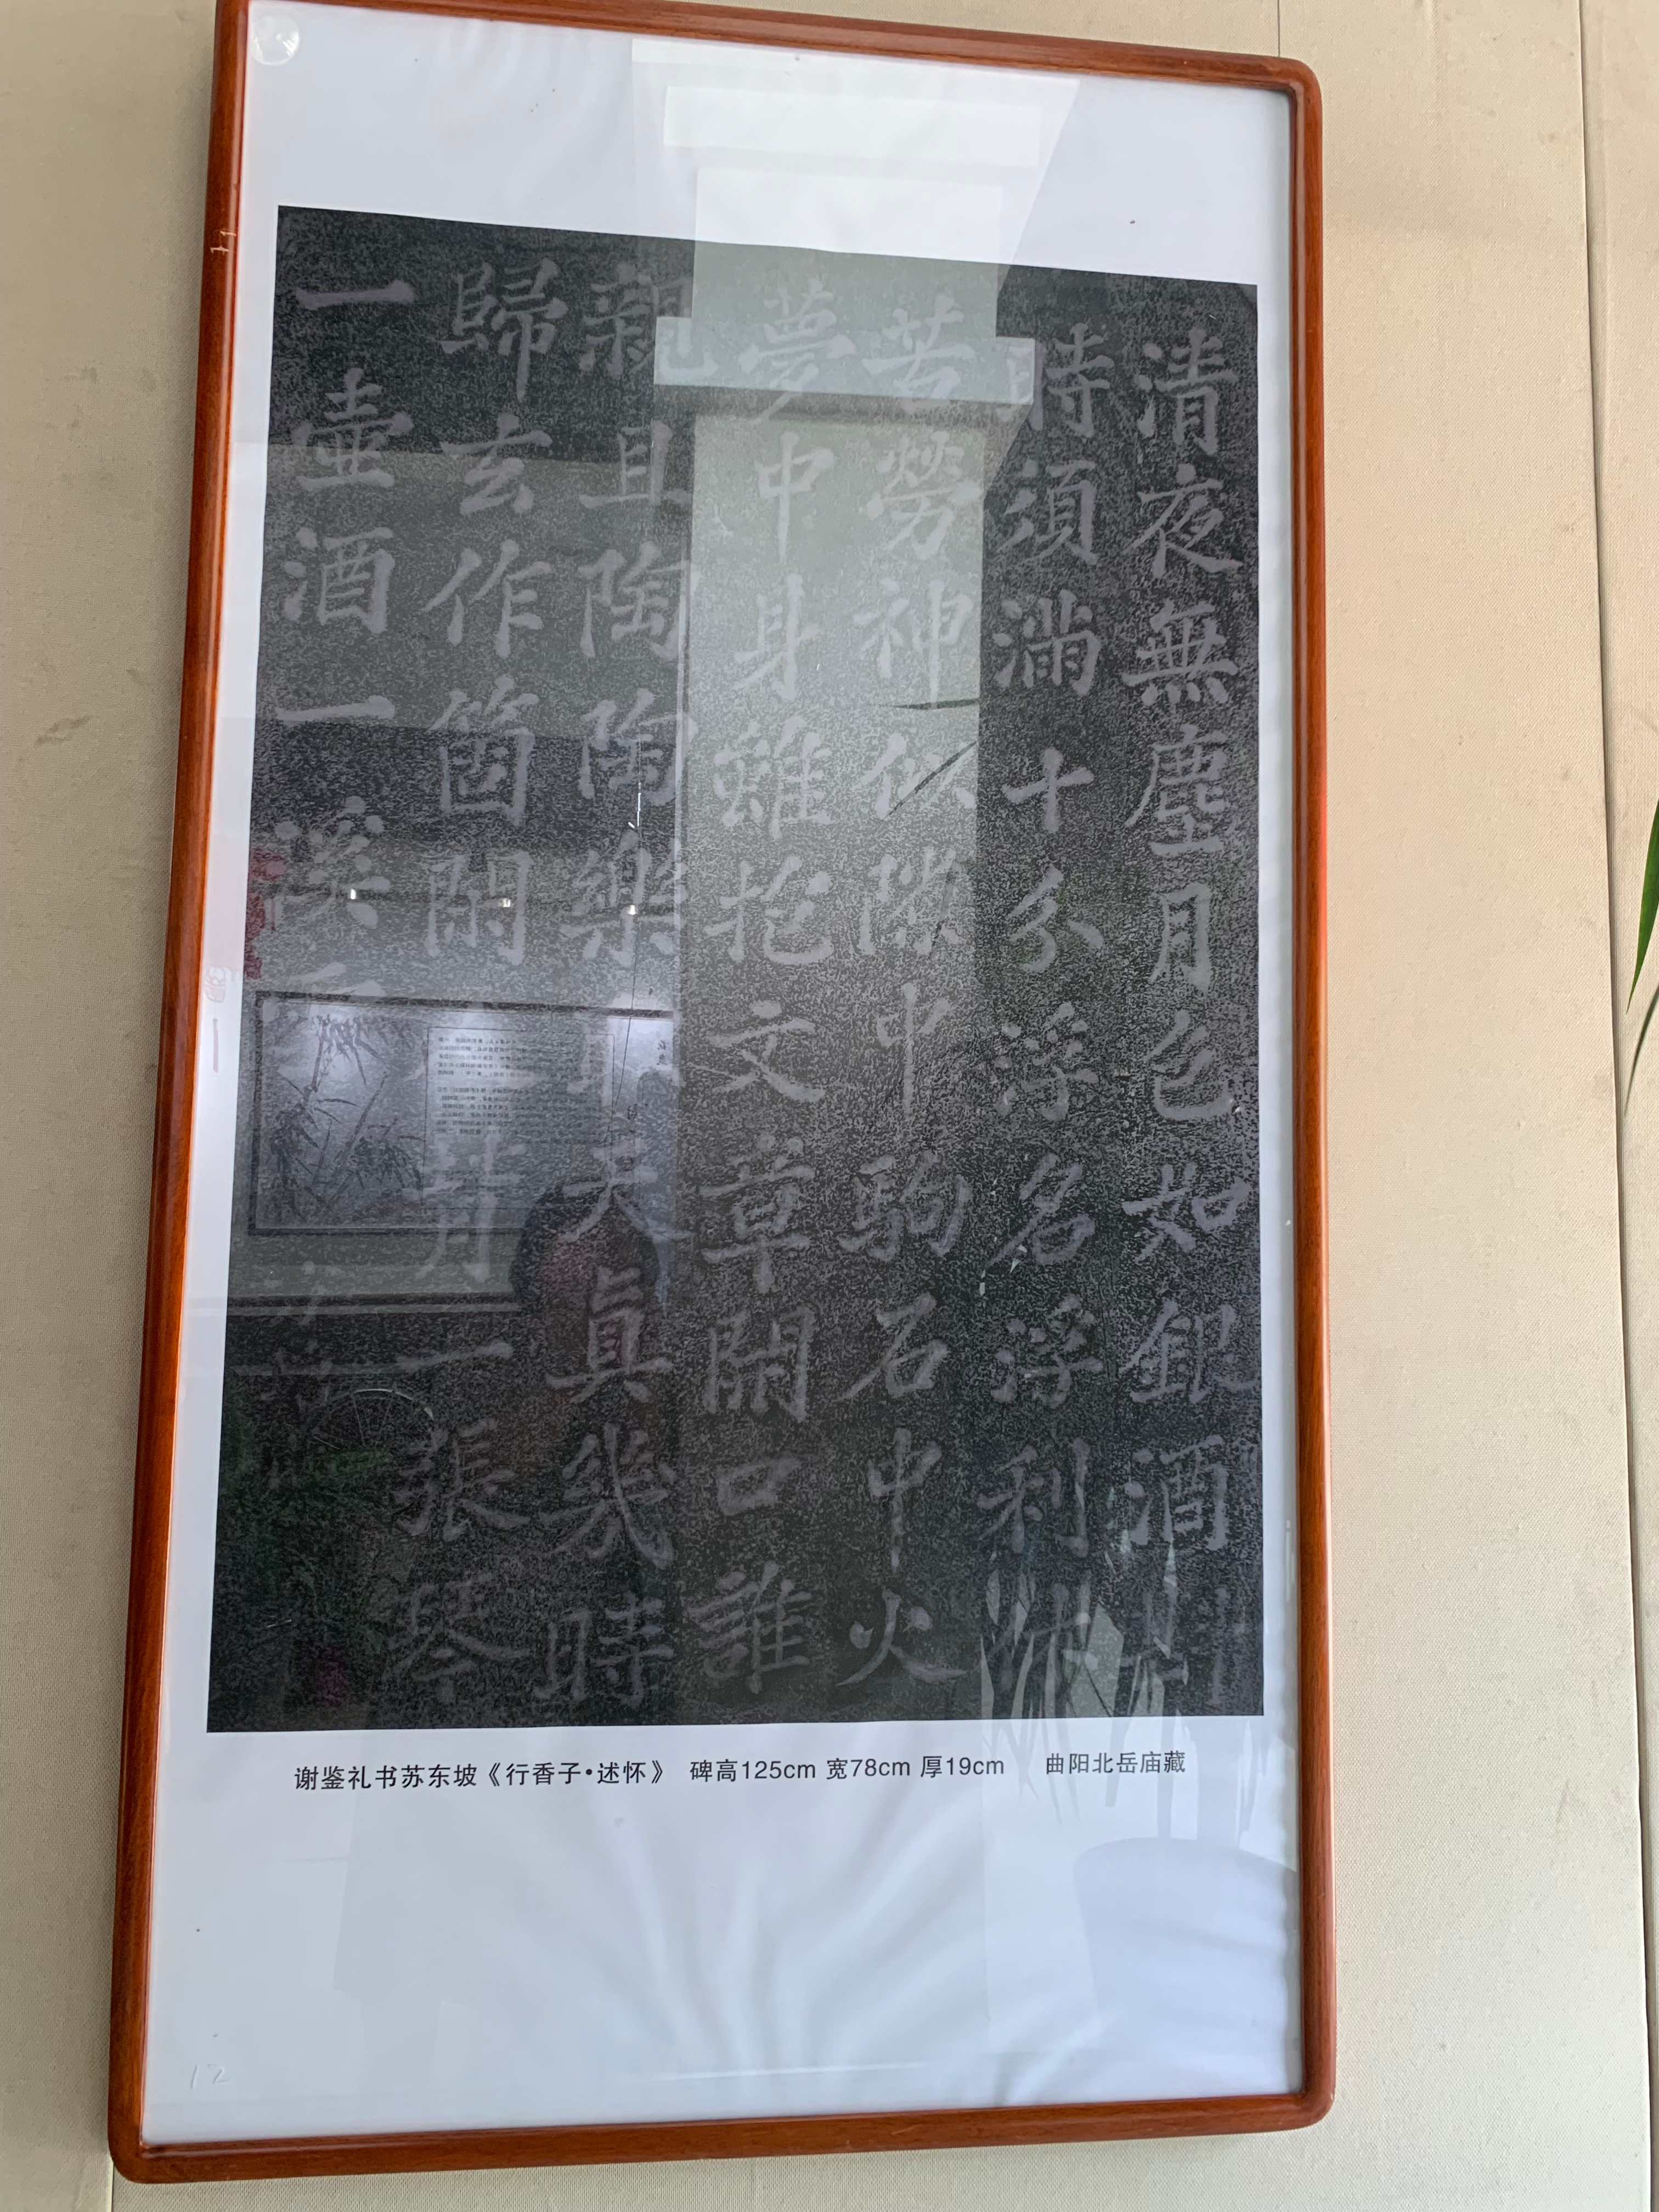 清夜無塵月色如銀酒斟
時須滿十分浮名浮利休
苦勞神似隙中駒石中火
夢中身雖抱文章開口誰
親且陶陶樂天真幾時
歸去作箇閑一張琴
一壺酒一溪
谢鉴礼书苏东坡《行香子•述怀》 碑高125cm 宽78cm 厚19cm 曲阳北岳庙藏
12